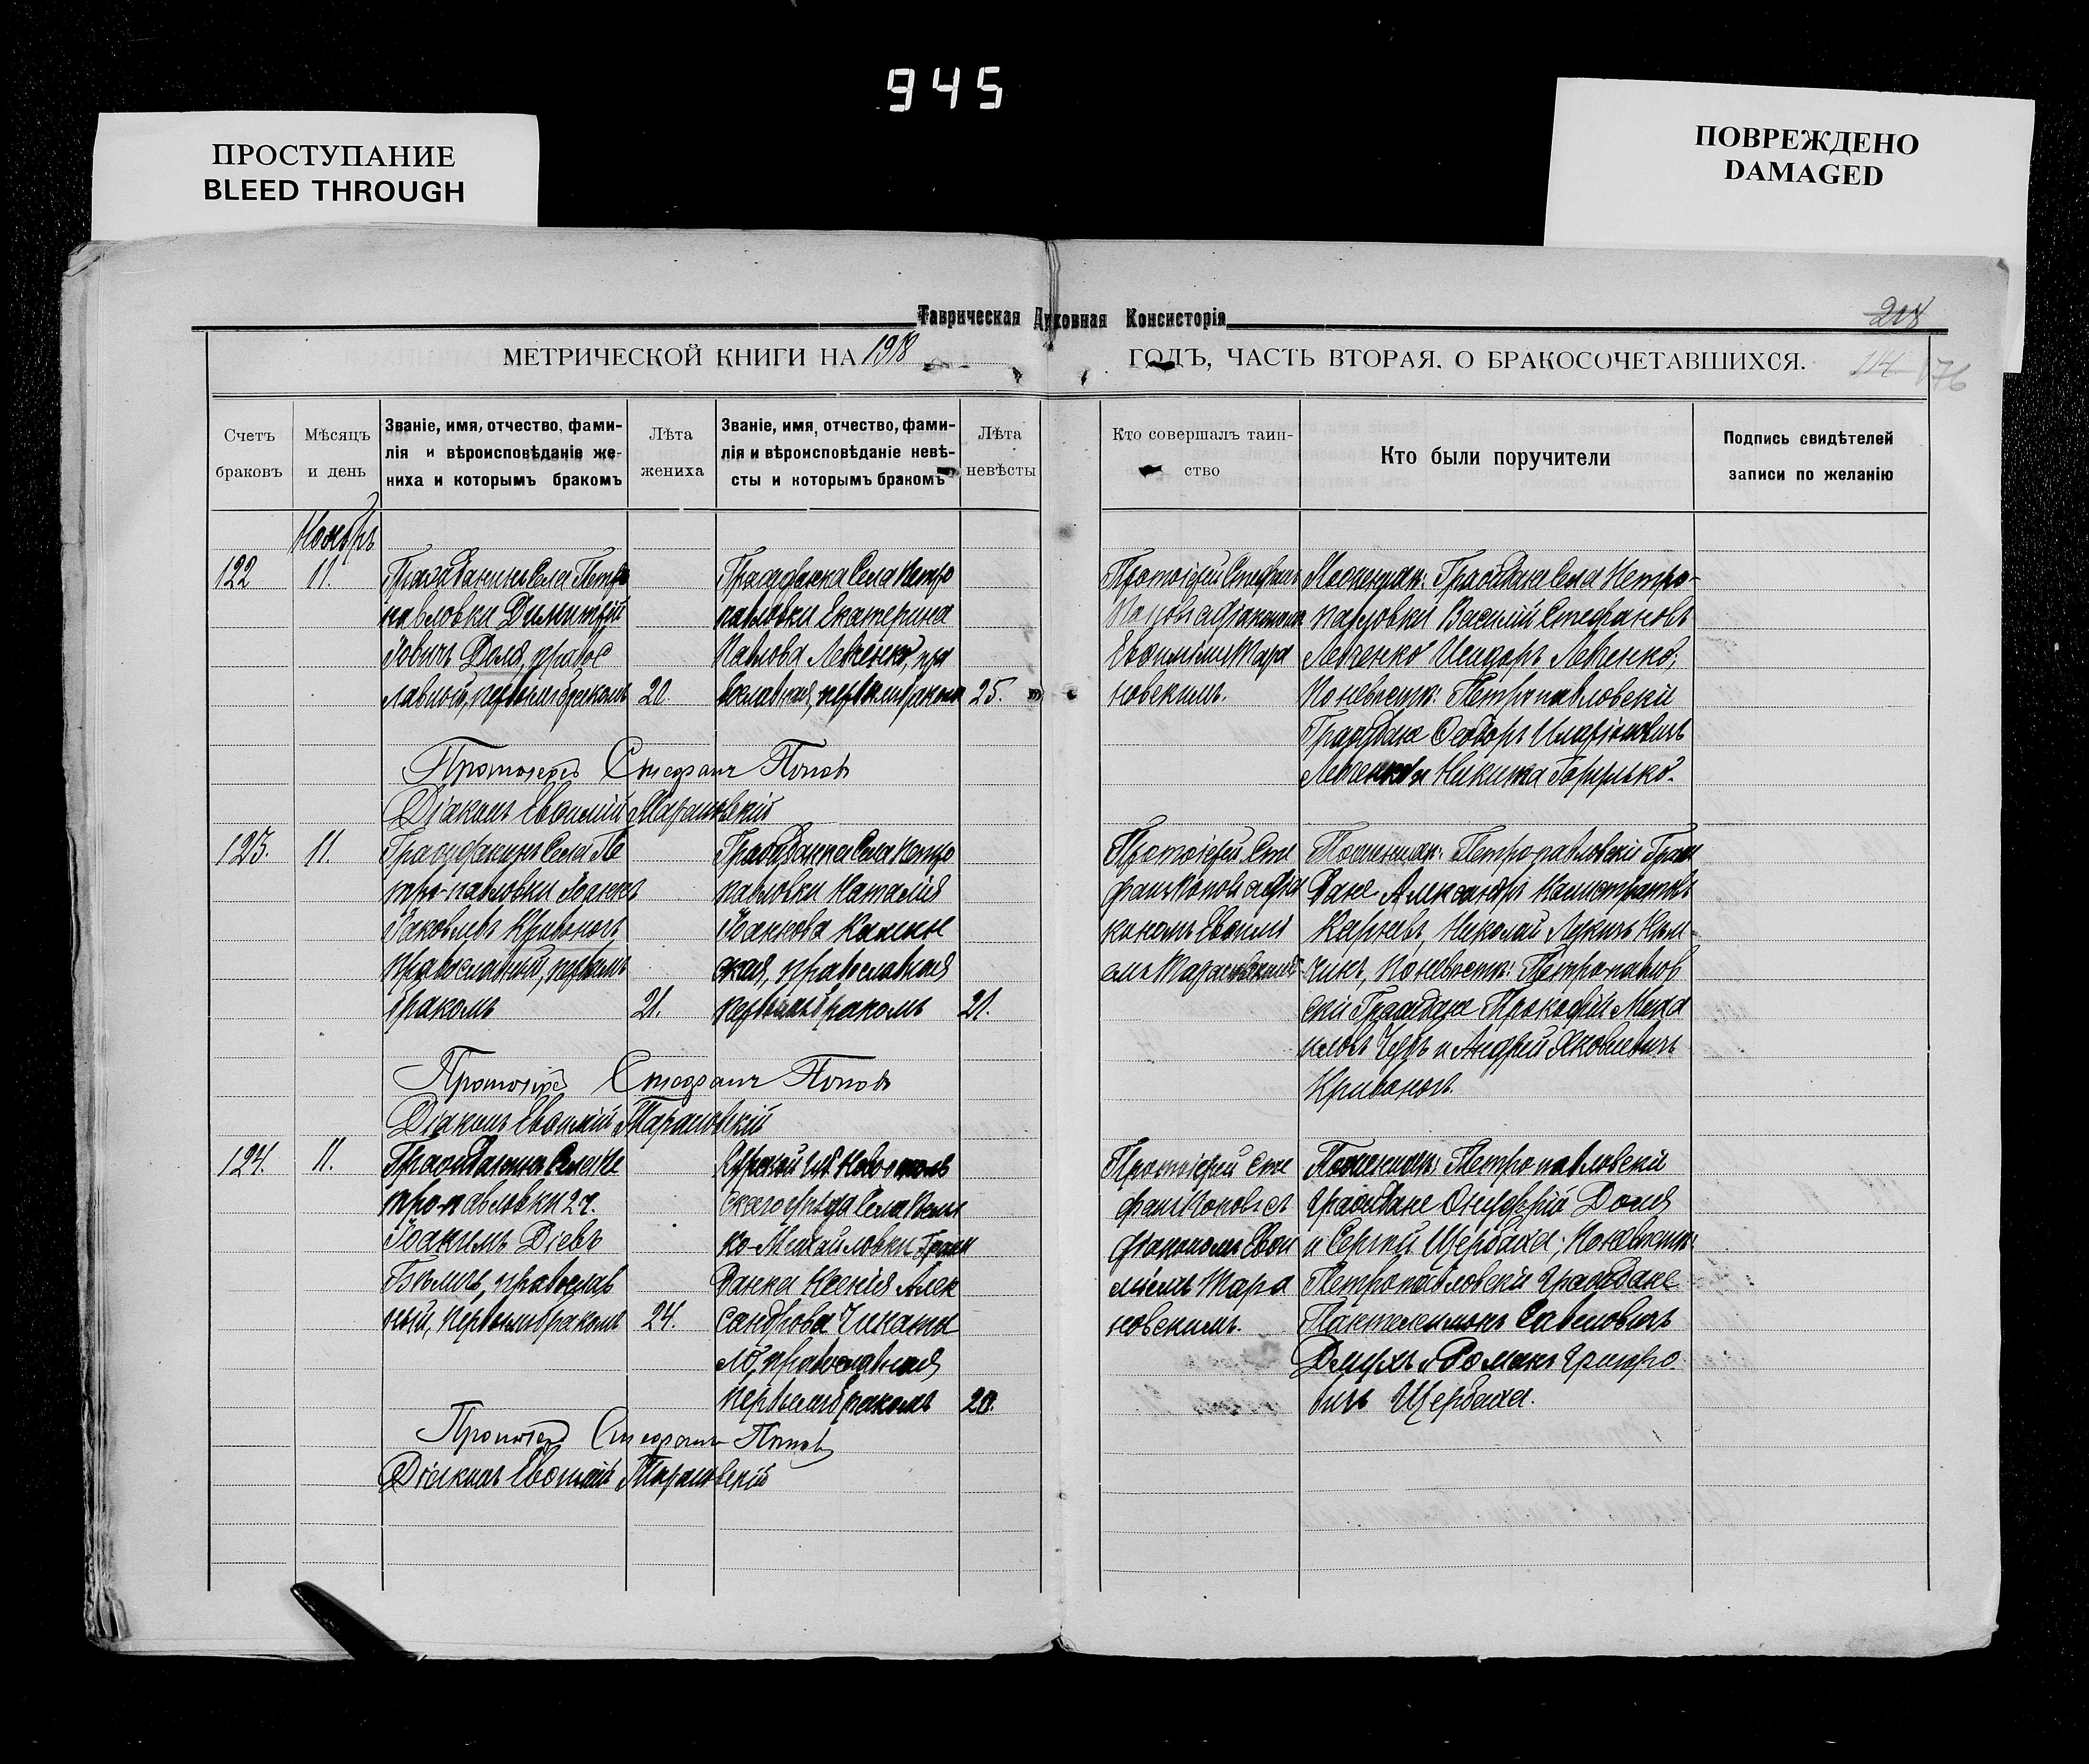 945
ПРОСТУПАНИЕ
BLEED THROUGH
ПОВРЕЖДЕНО
DAMAGED
Таврическая Духовная Консисторія
208
МЕТРИЧЕСКОЙ КНИГИ НА 1918 ГОДЪ, ЧАСТЬ ВТОРАЯ, О БРАКОСОЧЕТАВШИХСЯ.
114 176
Счетъ браковъ
Мѣсяцъ и день
Званіе, имя, отчество, фами-
лія и вѣроисповѣданіе же-
ниха и которымъ бракомъ
Лѣта жениха
Званіе, имя, отчество, фами-
лія и вѣроисповѣданіе невѣ-
сты и которымъ бракомъ
Лѣта невѣсты
Кто совершалъ таин-
ство
Кто были поручители
Подпись свидѣтелей
записи по желанію
Ноябрь
122
11.
Гражданинъ Села Петро
павловки Димитрій
Іовичъ Доля, правос
лавный, первымъ бракомъ
20.
Гражданка Села Петро
павловки Екатерина
Павлова Левченко, пра
вославная, первымъ бракомъ
25.
Протоіерей Стефанъ
Поповъ с діакономъ
Евфиміемъ Тара
новскимъ.
По женихѣ: Граждане Села Петро-
павловки Василій Стефановъ
Левченко Исидоръ Левченко,
По невѣстѣ: Петропавловскіе
Граждане Феодоръ Иларіоновичъ
Левченко и Никита
Протоіерей Стефанъ Поповъ
Діаконъ Евфимій Тарановскій
123.
11.
Гражданинъ Села Пе
тро-павловки Іоаннъ
Іаковлевъ Кривоногъ
православный, первымъ
бракомъ
21.
Гражданка Села Петро
павловки Наталія
Іоаннова
ская, православная
первымъ бракомъ
21.
Протоіерей Сте
фанъ Поповъ с діа
кономъ Евфимі
емъ Тарановскимъ
По женихѣ: Петропавловскіе Граж
дане Александръ Калистратовъ
Николай
По невѣстѣ: Петропавлов
скіе Граждане Прокофій Миха
иловъ и Андрей Яковлевичъ
Кривоногъ.
Протоіерей Стефанъ Поповъ
Діаконъ Евфимій Тарановскій
124.
11.
Гражданинъ Села Пе
тро-павловки 2 ч.
Іоакимъ Діевъ
Бѣлыхъ, православ
ный, первымъ бракомъ
24.
Курской губ. Новооскольс
скаго уѣзда Села Вели
ко-Михайловки Граж
данка Ксенія Алек
сандрова
православная
первымъ бракомъ
20.
Протоіерей Сте
фанъ Поповъ съ
діакономъ Евфи
міемъ Тара
новскимъ.
По женихѣ: Петропавловскіе
граждане Онуфрій Доля
и Сергѣй Щербаха; По невѣстѣ:
Петропавловскіе граждане
Пантелимонъ Савеловичъ
и Романъ Григоро
вичъ Щербаха.
Протоіерей Стефанъ Поповъ
Діаконъ Евфимій Тарановскій